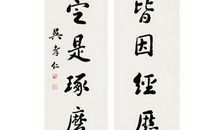 皆因經歷
空是琢磨
吳孝仁